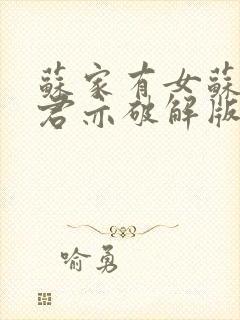 蘇家有女蘇
君亦破解版
喻勇